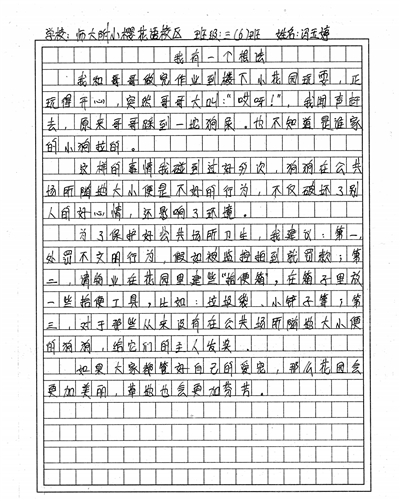 学校：师大附小樱花语校区 班级：三(6)班 姓名：闫文博
我有一个想法
我和哥哥做完作业到楼下小花园玩耍，正
玩得开心，突然哥哥大叫：“哎呀！”，我闻声赶
去，原来哥哥踩到一坨狗屎。也不知道是谁家
的小狗拉的。
这样的事情我碰到过好多次，狗狗在公共
场所随地大小便是不好的行为，不仅破坏了别
人的好心情，还影响了环境。
为了保护好公共场所卫生，我建议：第一，
处罚不文明行为，假如被监控拍到就罚款；第
二，请物业在花园里建些“拾便箱”，在箱子里放
一些拾便工具，比如：垃圾袋、小铲子等；第
三，对于那些从来没有在公共场所随地大小便
的狗狗，给它们的主人发奖。
如果大家都管好自己的爱宠，那么花园会
更加美丽，草地也会更加芬芳。